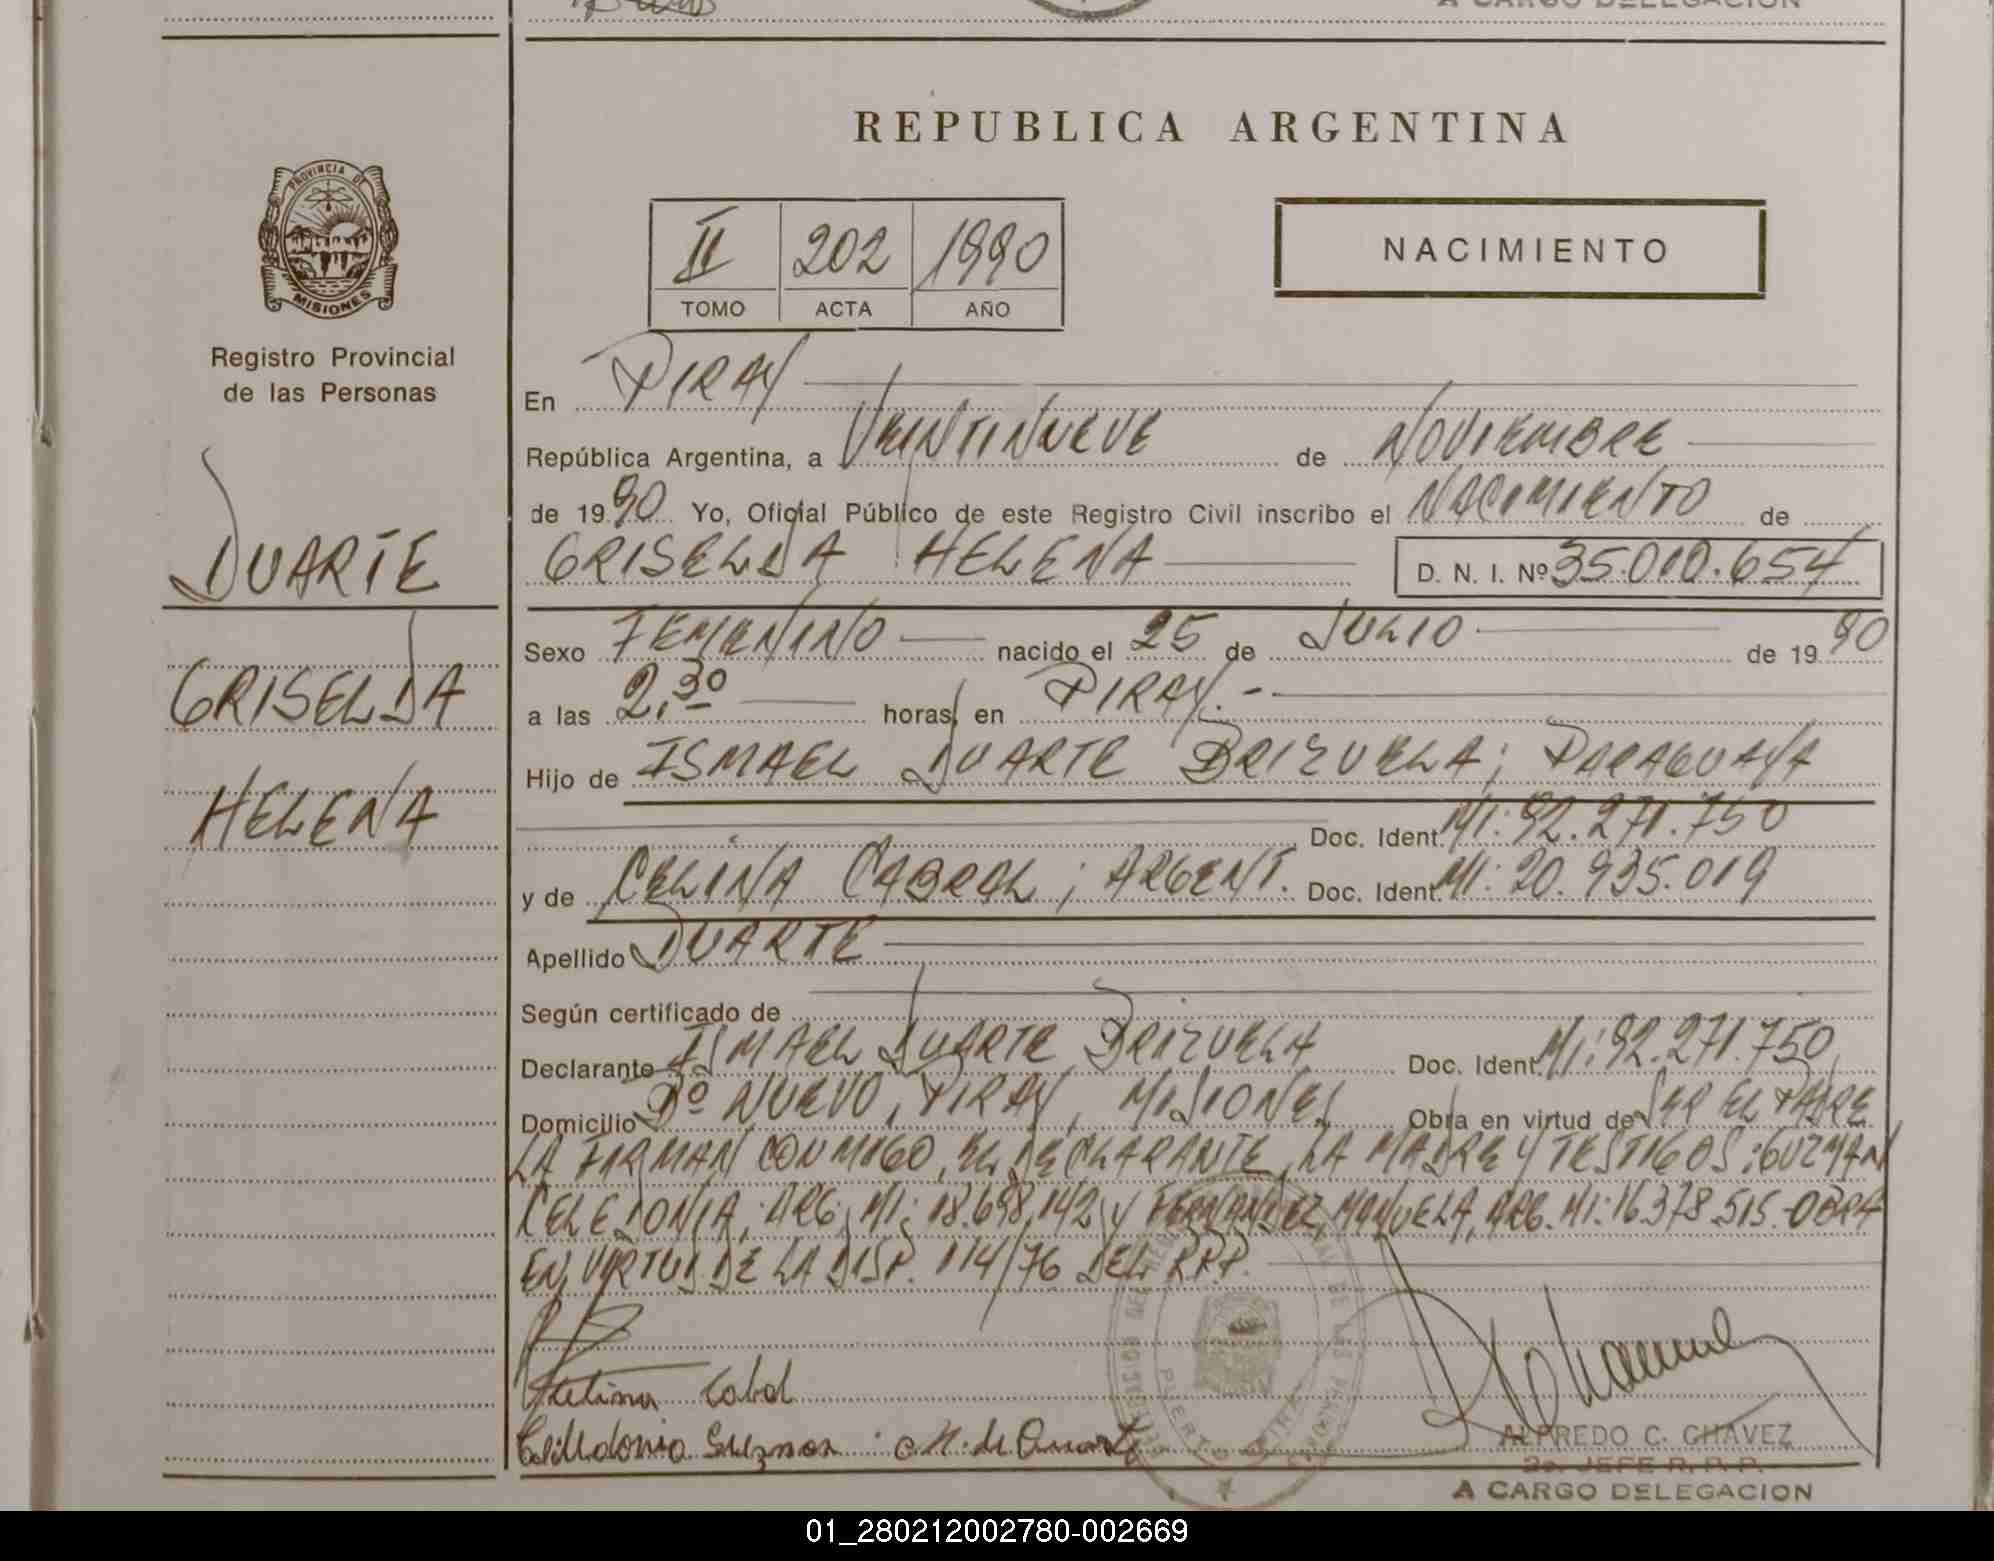 A CARGO DELEGACION
REPUBLICA ARGENTINA
PROVINCIA DE
MISIONES
Registro Provincial
de las Personas
II 202 1990
TOMO ACTA AÑO
NACIMIENTO
DUARTE
GRISELDA
HELENA
En PIRAY
República Argentina, a VEINTINUEVE de NOVIEMBRE
de 1990 Yo, Oficial Público de este Registro Civil inscribo el NACIMIENTO de
GRISELDA HELENA D. N. I. Nº 35.010.654
Sexo FEMENINO nacido el 25 de JULIO de 1990
a las 2,30 horas, en PIRAY.-
Hijo de ISMAEL DUARTE BRIZUELA; PARAGUAYA
Doc. Ident. MI: 92.271.750
y de CELINA CABRAL; ARGENT. Doc. Ident. MI: 20.935.019
Apellido DUARTE
Según certificado de
Declarante ISMAEL DUARTE BRIZUELA Doc. Ident. MI: 92.271.750
Domicilio Bº NUEVO, PIRAY, MISIONES Obra en virtud de SER EL PADRE
LA FIRMAN CONMIGO, EL DECLARANTE, LA MADRE Y TESTIGOS: GUZMAN
CELEDONIA, ARG. MI: 18.698.142 Y FERNANDEZ, MANUELA, ARG. MI: 16.378.515.-OBRA
EN VIRTUD DE LA DISP. 114/76 DEL R.P.P.
Celina Cabral
Celidonia Guzman
ALFREDO C. CHAVEZ
2o. JEFE R. P. P.
A CARGO DELEGACION
01_280212002780-002669